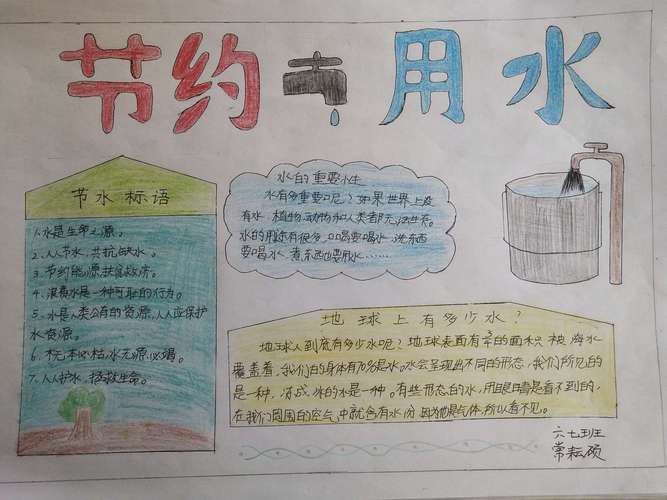 节约用水
节水标语
1.水是生命之源。
2.人人节水,共抗缺水。
3.节约能源
4.浪费水是一种可耻的行为。
5.水是人类公有的资源,人人应保护
水资源。
6.木无本必枯,水无源必竭。
7.人人护水,拯救生命。
水的重要性
水有多重要呢?如果世界上没
有水,植物、动物和人类都无法生存。
水的用途有很多,口喝要喝水,洗东西
要喝水,煮东西也要用水……
地球上有多少水?
地球人到底有多少水呢?地球表面有的面积被海水
覆盖着,我们的身体有70%是水。水会呈现出不同的形态,我们所见的
是一种,冻成冰的水是一种。有些形态的水,用眼睛是看不到的,
在我们周围的空气中就含有水份,因为他是气体,所以看不见。
六七班
常耘硕